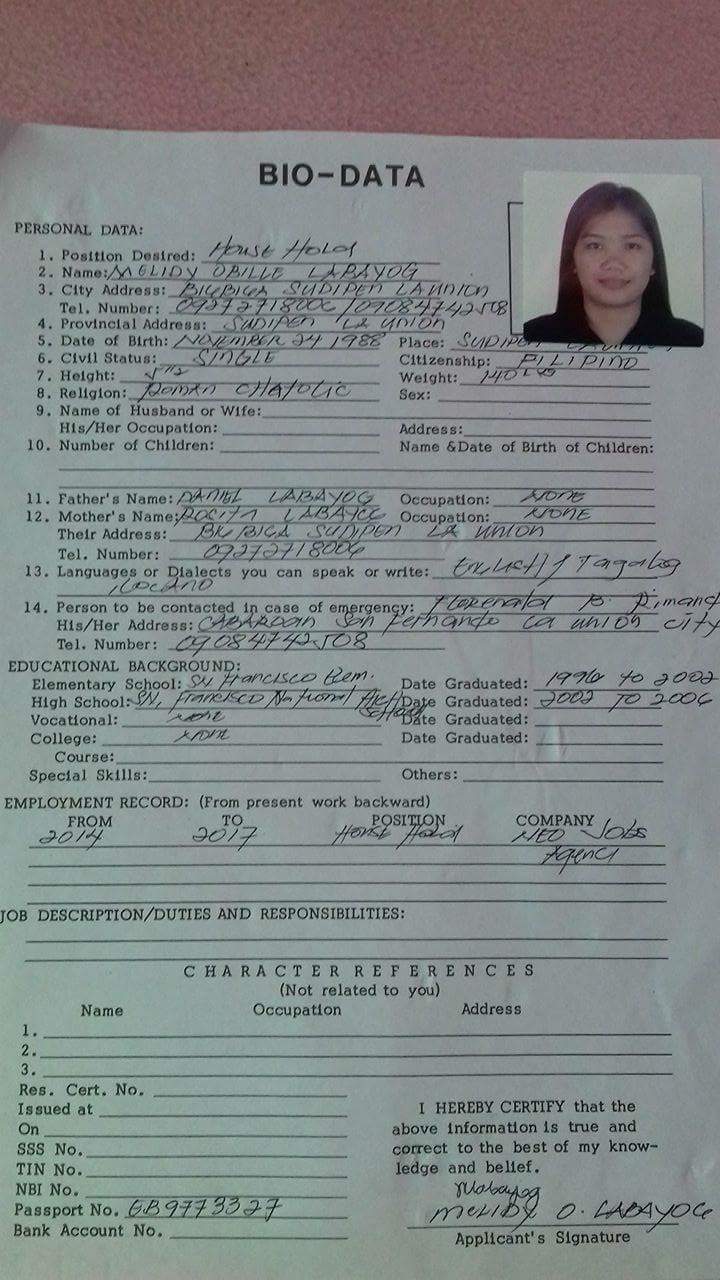 BIO-DATA
PERSONAL DATA:
1. Position Desired: House Hold
2. Name: MELIDY OBILLE LABAYOG
3. City Address: BIGBIGA SUDIPEN LA UNION
Tel. Number: 09272718006 / 09084742508
4. Provincial Address: SUDIPEN LA UNION
5. Date of Birth: NOVEMBER 24 1988 Place: SUDIPEN
6. Civil Status: SINGLE Citizenship: PILIPINO
7. Height: Weight: 140
8. Religion: Roman CHATOLIC Sex:
9. Name of Husband or Wife:
His/Her Occupation: Address:
10. Number of Children: Name & Date of Birth of Children:
11. Father's Name: DANIEL LABAYOG Occupation: NONE
12. Mother's Name: ROSITA LABAYOG Occupation: NONE
Their Address: BIGBIGA SUDIPEN LA UNION
Tel. Number: 09272718006
13. Languages or Dialects you can speak or write: Tagalog
ILOCANO
14. Person to be contacted in case of emergency:
His/Her Address: CABAROAN San Fernando La union city
Tel. Number: 09084742508
EDUCATIONAL BACKGROUND:
Elementary School: SN Francisco Elem. Date Graduated: 1996 to 2002
High School: SN, Francisco National High School Date Graduated: 2002 TO 2006
Vocational: none Date Graduated:
College: none Date Graduated:
Course:
Special Skills: Others:
EMPLOYMENT RECORD: (From present work backward)
FROM TO POSITION COMPANY
2014 2017 House Hold NEO Jobs
Agency
JOB DESCRIPTION/DUTIES AND RESPONSIBILITIES:
CHARACTER REFERENCES
(Not related to you)
Name Occupation Address
1.
2.
3.
Res. Cert. No.
Issued at
On
SSS No.
TIN No.
NBI No.
Passport No. EB9773327
Bank Account No.
I HEREBY CERTIFY that the
above information is true and
correct to the best of my know-
ledge and belief.
MELIDY O. LABAYOG
Applicant's Signature